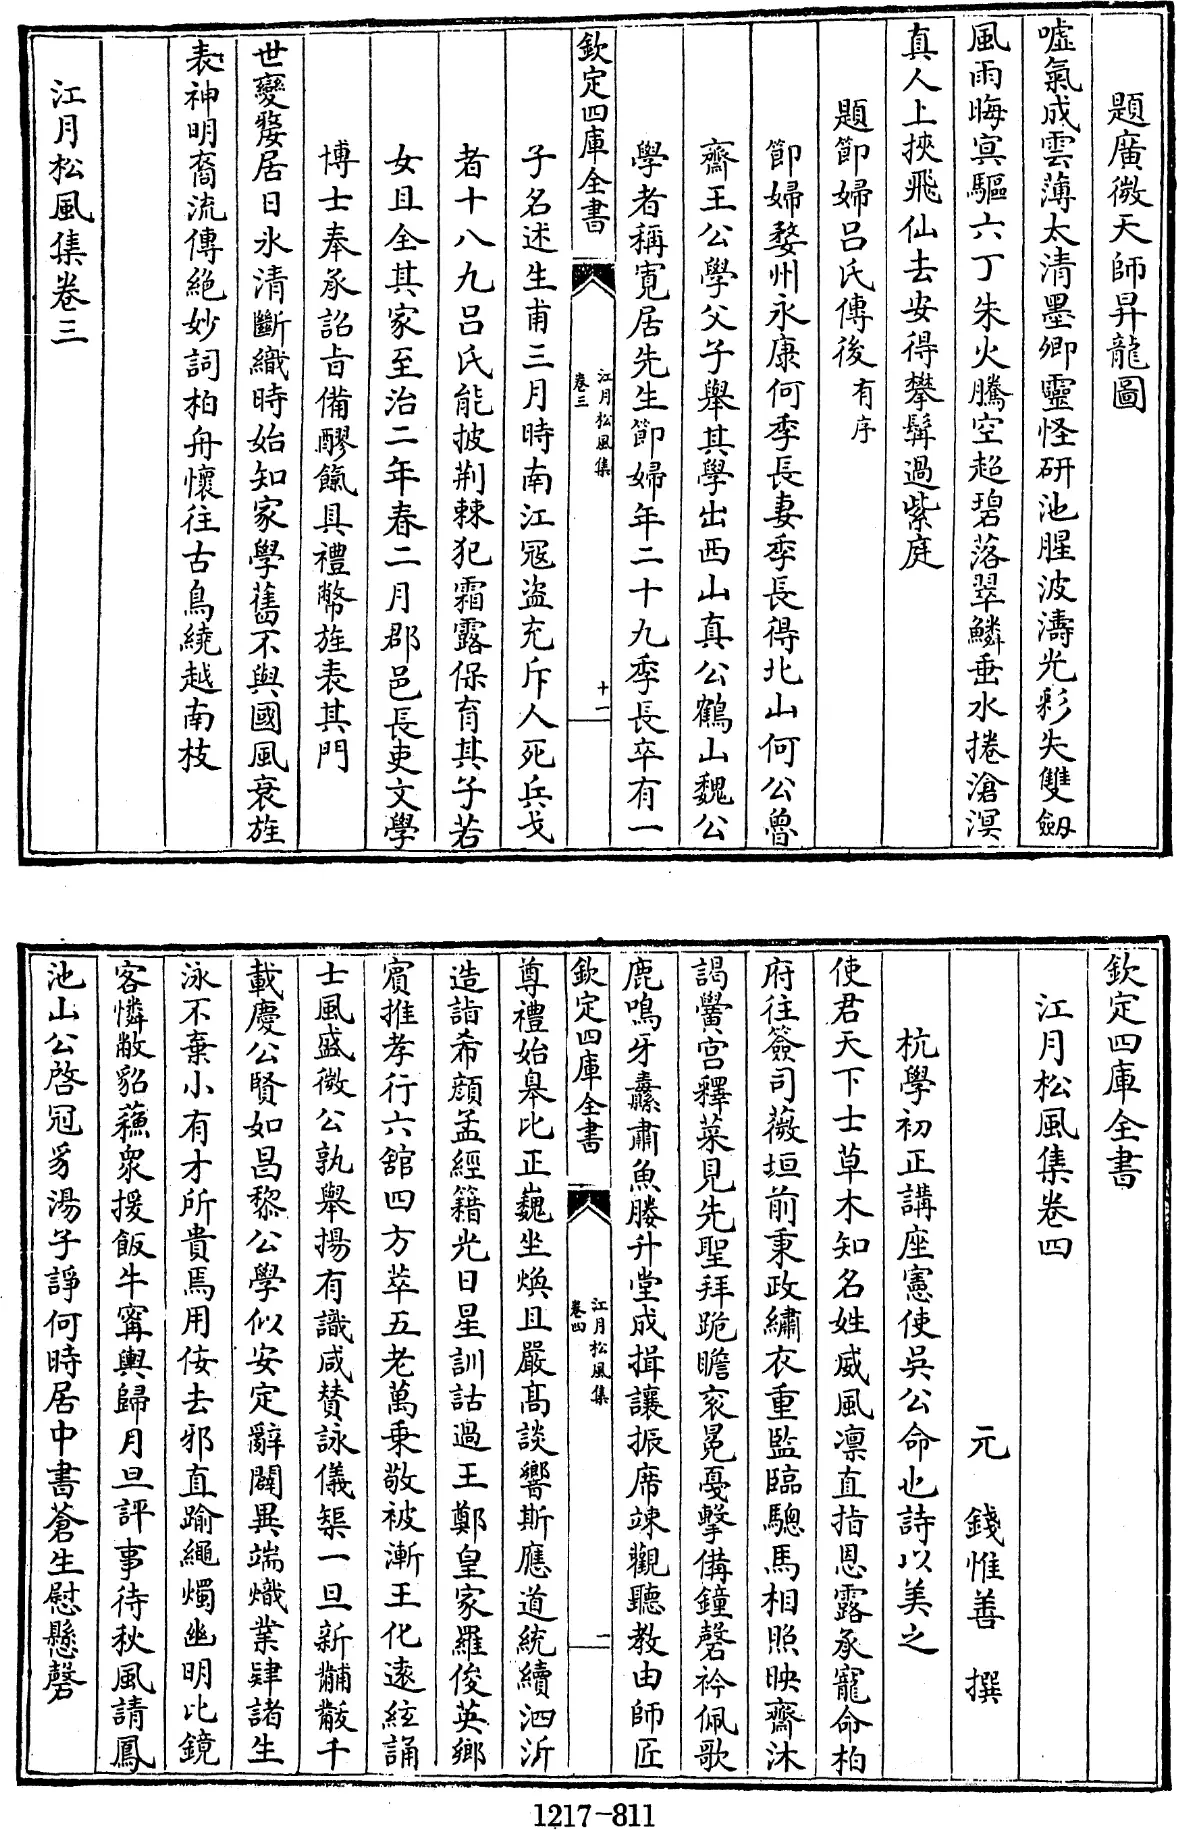 題廣微天師昇龍圖
嘘氣成雲薄太清墨卿靈怪研池腥波濤光彩失雙劔
風雨晦㝠驅六丁朱火騰空超碧落翠鱗垂水捲滄溟
真人上挾飛仙去安得攀髯過紫庭
題節婦吕氏傳後有序
節婦婺州永康何季長妻季長得北山何公魯
齋王公學父子舉其學出西山真公鶴山魏公
學者稱寛居先生節婦年二十九季長卒有一
欽定四庫全書
江月松風集
卷三
十一
子名述生甫三月時南江冦盗充斥人死兵戈
者十八九吕氏能披荆棘犯霜露保育其子若
女且全其家至治二年春二月郡邑長吏文學
博士奉承詔旨備醪餼具禮幣旌表其門
世變嫠居日氷清斷織時始知家學舊不與國風衰旌
表神明裔流傳絶妙詞柏舟懷往古鳥繞越南枝
江月松風集卷三
欽定四庫全書
江月松風集卷四
元 錢惟善 撰
杭學初正講座憲使吳公命也詩以美之
使君天下士草木知名姓威風凛直指恩露承寵命柏
府往簽司薇垣前秉政繡衣重監臨驄馬相照映齋沐
謁黌宮釋菜見先聖拜跪瞻衮冕戞擊備鐘磬衿佩歌
鹿鳴牙纛肅魚媵升堂成揖讓振席竦觀聽教由師匠
欽定四庫全書
江月松風集
卷四
一
尊禮始臯比正巍坐煥且嚴髙談響斯應道統續泗沂
造詣希顔孟經籍光日星訓詁過王鄭皇家羅俊英鄉
賓推孝行六舘四方萃五老萬乗敬被漸王化逺絃誦
士風盛微公孰舉揚有識咸賛詠儀榘一旦新黼黻千
載慶公賢如昌黎公學似安定辭闢異端熾業肄諸生
泳不棄小有才所貴焉用佞去邪直踰繩燭幽明比鏡
客憐敝貂蘓衆援飯牛甯輿歸月旦評事待秋風請鳳
池山公啓冠豸湯子諍何時居中書蒼生慰懸磬
1217-811